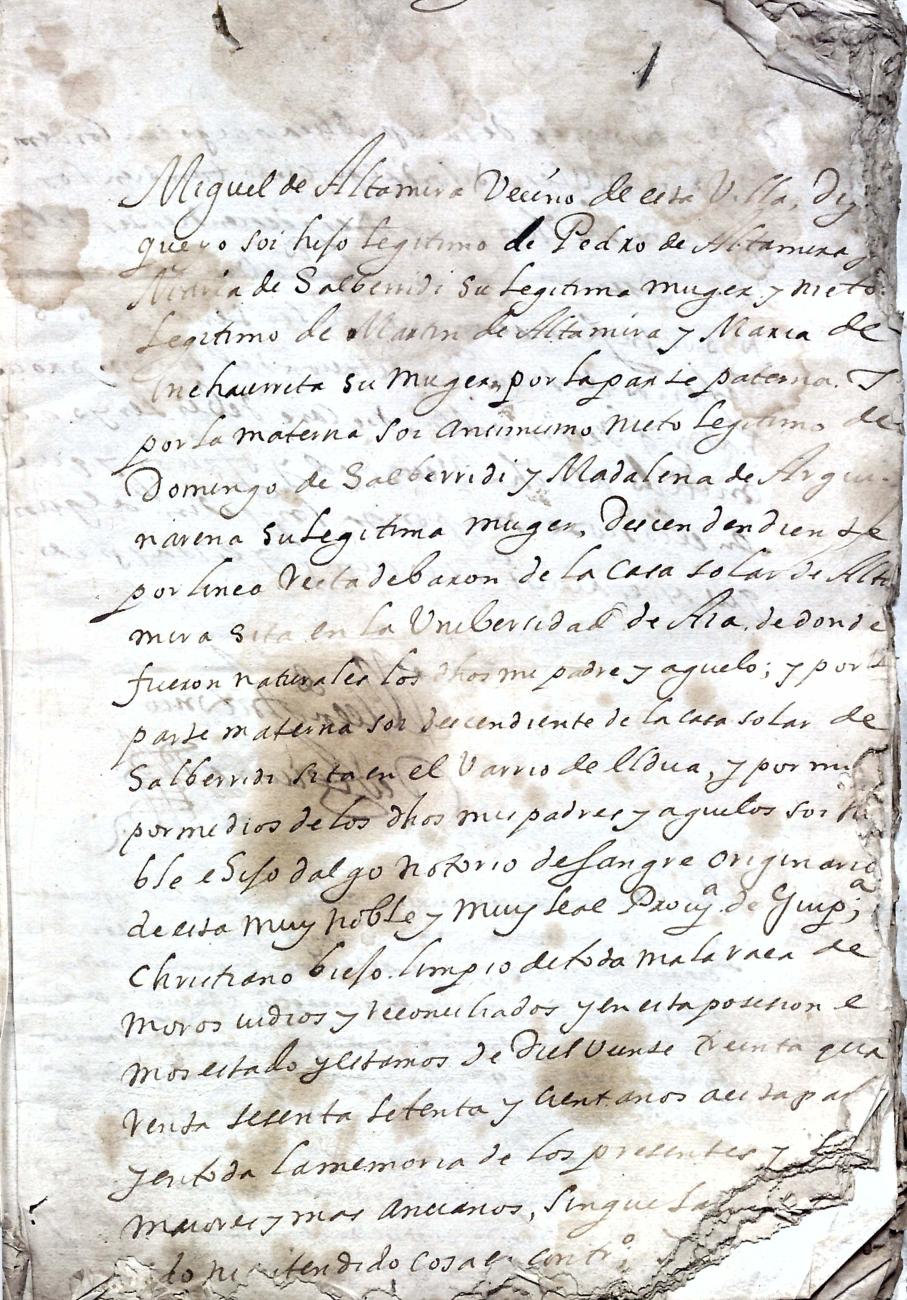 1
Miguel de Altamira Vecino de esta Villa, Digo
que yo soi hijo Legitimo de Pedro de Altamira y
Maria de Salberridi su Legitima muger y nieto
Legitimo de Martin de Altamira y Maria de
Inchaurreta su muger, por la parte paterna. Y
por la materna soi ansimismo nieto Legitimo de
Domingo de Salberridi y Madalena de Argui-
narena su Legitima muger, Descendendiente
por linea Recta de baron de la Casa solar de Alta
mira sita en la Unibersidad de Aia, de donde
fueron naturales los dhos mi padre y aguelo; y por la
parte materna soi descendiente de la casa solar de
Salberridi sita en el Varrio de Eldua, y por mi
por medios de los dhos mis padres y aguelos soi no
ble e Hijo dalgo notorio de sangre originario
de esta muy noble y muy leal Provª de Guipª;
Christiano biejo limpio de toda mala raza de
moros iudios y reconciliados y en esta posesion e
mos estado y estamos de Diez Veinte treinta qua
renta sesenta setenta y Cient anos a esta parte
y en toda la memoria de los presentes y
maiores y mas ancianos, sin que
do ni entendido cosa en contrº